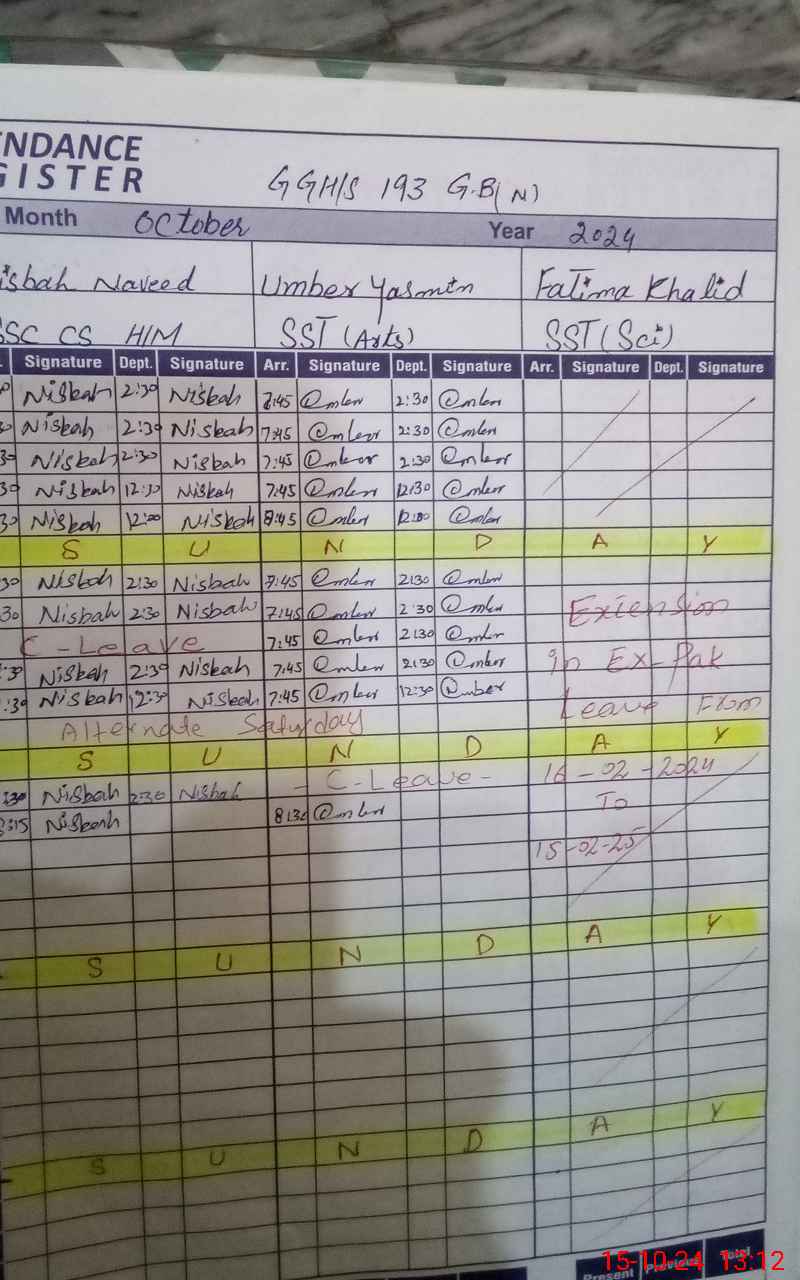 NDANCE
GISTER
GGH/S 193 G.B(N)
Month October Year 2024
isbah Naveed Umber Yasmin Fatima Khalid
SSC CS H/M SST (Arts) SST (Sci)
Signature Dept. Signature Arr. Signature Dept. Signature Arr. Signature Dept. Signature
Nisbah 2:30 Nisbah 7:45 @mber 2:30 @mber
Nisbah 2:30 Nisbah 7:45 @mber 2:30 @mber
30 Nisbah 2:30 Nisbah 7:45 @mber 2:30 @mber
30 Nisbah 12:30 Nisbah 7:45 @mber 12:30 @mber
30 Nisbah 12:00 Nisbah 8:45 @mber 12:00 @mber
S U N D A Y
30 Nisbah 2:30 Nisbah 7:45 @mber 2:30 @mber
30 Nisbah 2:30 Nisbah 7:45 @mber 2:30 @mber Extension
C-Leave 7:45 @mber 2:30 @mber
:30 Nisbah 2:30 Nisbah 7:45 @mber 2:30 @mber in Ex-Pak
:30 Nisbah 12:30 Nisbah 7:45 @mber 12:30 @mber Leave From
Alternate Saturday
S U N D A Y
:30 Nisbah 2:30 Nisbah - C-Leave - 16-02-2024
:15 Nisbah 8:30 @mber To
15-02-25
S U N D A Y
S U N D A Y
Present Previous Total
15-10-24 13:12